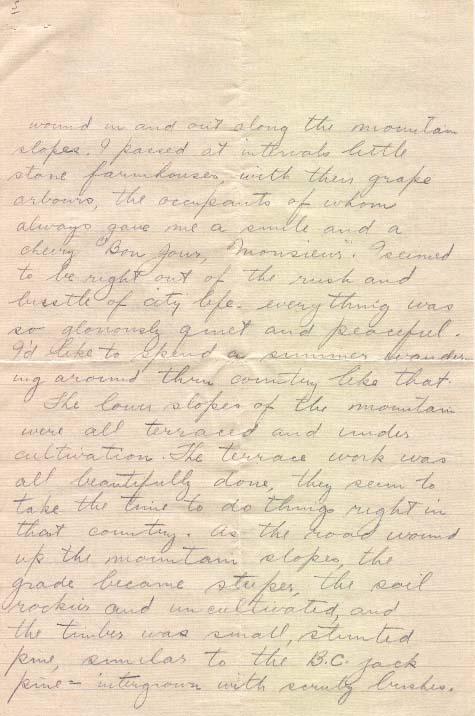 5
wound in and out along the mountain
slopes. I passed at intervals little
stone farmhouses, with their grape
arbours, the occupants of whom
always gave me a smile and a
cheery "Bon Jour, Monsieur". I seemed
to be right out of the rush and
bustle of city life. everything was
so gloriously quiet and peaceful.
I'd like to spend a summer wander-
ing around thru country like that.
The lower slopes of the mountain
were all terraced and under
cultivation. The terrace work was
all beautifully done, they seem to
take the time to do things right in
that country. As the road wound
up the mountain slopes, the
grade became steeper, the soil
rockier and uncultivated, and
the timber was small, stunted
pine, similar to the B.C. jack
pine - intergrown with scruby bushes.